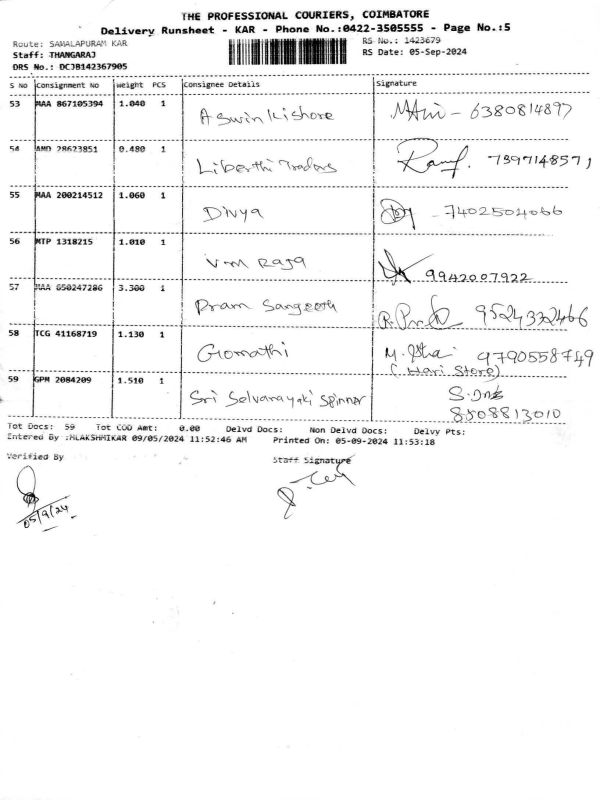 THE PROFESSIONAL COURIERS, COIMBATORE
Delivery Runsheet - KAR - Phone No.:0422-3505555 - Page No.:5
Route: SAMALAPURAM KAR RS No.: 1423679
Staff: THANGARAJ RS Date: 05-Sep-2024
DRS No.: DCJB142367905
S No Consignment No Weight PCS Consignee Details Signature
53 MAA 867105394 1.040 1 Aswin Kishore Mani - 6380814897
54 AMD 28623851 0.480 1 Liberthi Traders 7397148571
55 MAA 200214512 1.060 1 Divya - 7402504066
56 MTP 1318215 1.010 1 V M Raja 9942007922
57 MAA 650247286 3.300 1 Pram Sangeeth 9524332466
58 TCG 41168719 1.130 1 Gomathi M. 9790558749
(Hari Store)
59 GPM 2084209 1.510 1 Sri Selvanayaki Spinner
8508813010
Tot Docs: 59 Tot COD Amt: 0.00 Delvd Docs: Non Delvd Docs: Delvy Pts:
Entered By :MLAKSHMIKAR 09/05/2024 11:52:46 AM Printed On: 05-09-2024 11:53:18
Verified By Staff Signature
05/9/24